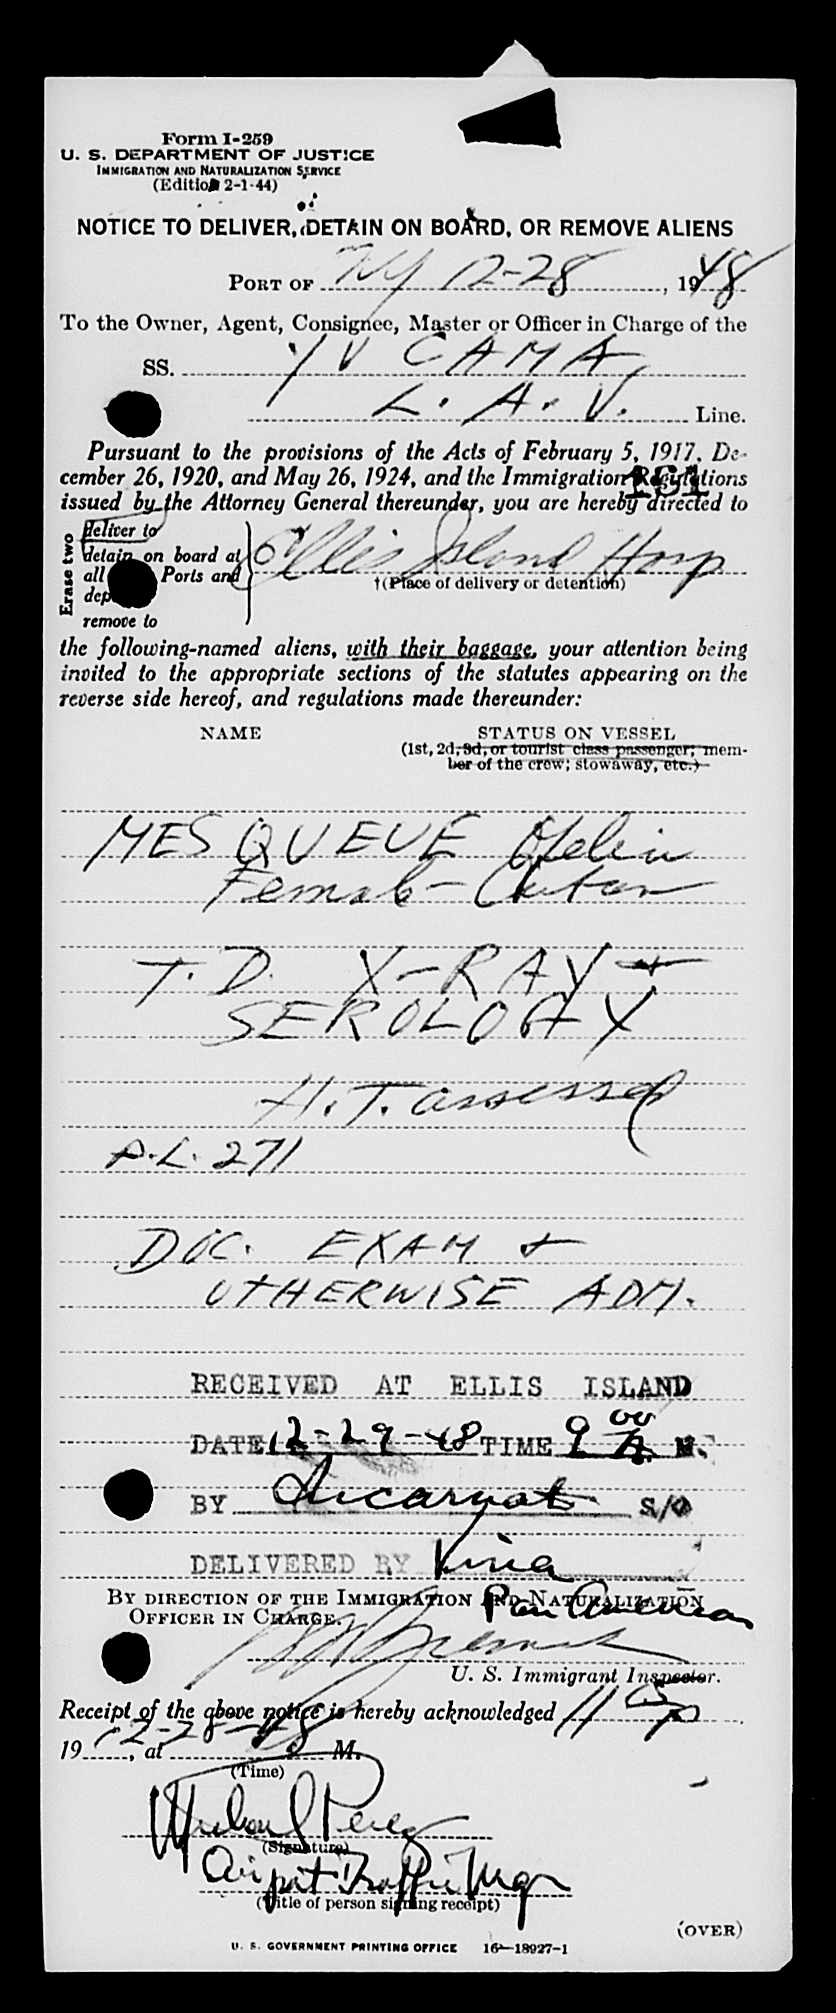 Form I-259
U. S. DEPARTMENT OF JUSTICE
IMMIGRATION AND NATURALIZATION SERVICE
(Edition 2-1-44)
NOTICE TO DELIVER, DETAIN ON BOARD, OR REMOVE ALIENS
PORT OF NY 12-28, 1948
To the Owner, Agent, Consignee, Master or Officer in Charge of the
SS. YV CAMA,
L. A. V. Line.
Pursuant to the provisions of the Acts of February 5, 1917, De-
cember 26, 1920, and May 26, 1924, and the Immigration Regulations
151
issued by the Attorney General thereunder, you are hereby directed to
Erase two
deliver to
detain on board at
all Ports and
remove to
Ellis Island Hosp
†(Place of delivery or detention)
the following-named aliens, with their baggage, your attention being
invited to the appropriate sections of the statutes appearing on the
reverse side hereof, and regulations made thereunder:
NAME STATUS ON VESSEL
(1st, 2d, 3d, or tourist class passenger; mem-
ber of the crew; stowaway, etc.)
MESQUEUE
Female - Cuban
T. D. X-RAY +
SEROLOGY
H.T. assessed
P.L. 271
DOC. EXAM +
OTHERWISE ADM.
RECEIVED AT ELLIS ISLAND
DATE 12-29-48 TIME 9 00 A. M.
BY S/O
DELIVERED BY
Pan American
BY DIRECTION OF THE IMMIGRATION AND NATURALIZATION
OFFICER IN CHARGE.
U. S. Immigrant Inspector.
Receipt of the above notice is hereby acknowledged 11
12-28-48
19, at M.
(Time)
Perez
(Signature)
Airport Traffic Mgr
(Title of person signing receipt)
(OVER)
U. S. GOVERNMENT PRINTING OFFICE 16—18927-1